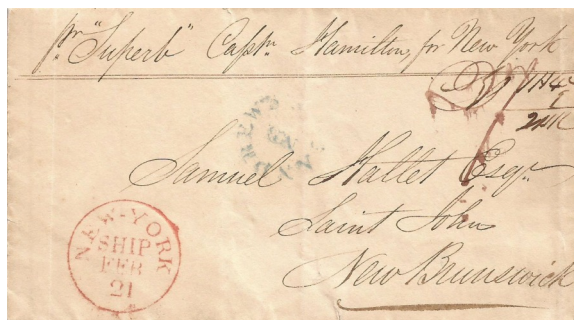 pr. "Superb" Captn. Hamilton, for New York
Samuel Hallet Esqr.
Saint John
New Brunswick
NEW-YORK
SHIP
FEB
21